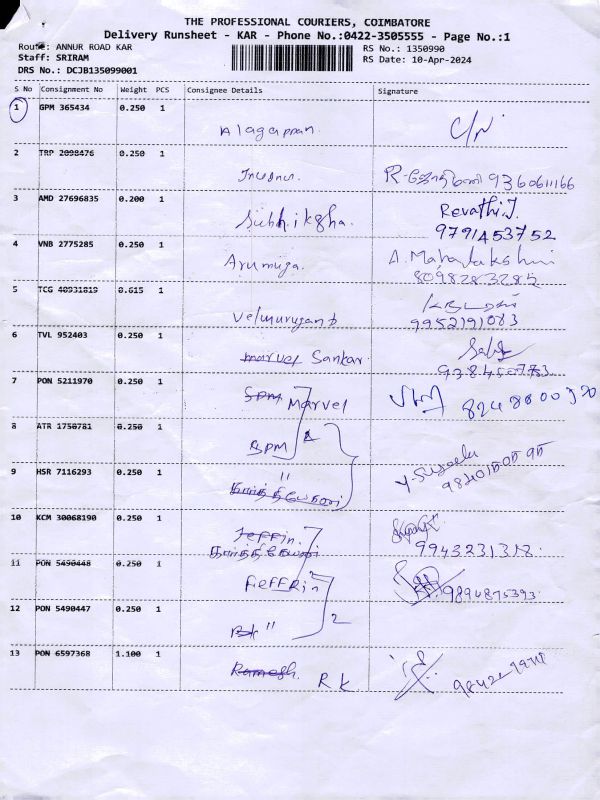 THE PROFESSIONAL COURIERS, COIMBATORE
Delivery Runsheet - KAR - Phone No.:0422-3505555 - Page No.:1
Route: ANNUR ROAD KAR RS No.: 1350990
Staff: SRIRAM RS Date: 10-Apr-2024
DRS No.: DCJB135099001
S No Consignment No Weight PCS Consignee Details Signature
1 GPM 365434 0.250 1
Alagappan.
2 TRP 2098476 0.250 1
9360611166
3 AMD 27696835 0.200 1 Revathi.J.
Subhikgha. 9791453752
4 VNB 2775285 0.250 1 A. Mahalakshmi
Arumuga.
5 TCG 40931819 0.615 1
Velmurugan 9952191083
6 TVL 952403 0.250 1
marvel Sankar.
7 PON 5211970 0.250 1
SPM Marvel
8 ATR 1750781 0.250 1
BPM 2
9 HSR 7116293 0.250 1
"
10 KCM 30068190 0.250 1
Jeffin. 9943231318.
11 PON 5490448 0.250 1
9894875393
12 PON 5490447 0.250 1
" 2
13 PON 6597368 1.100 1
Ramesh. R k